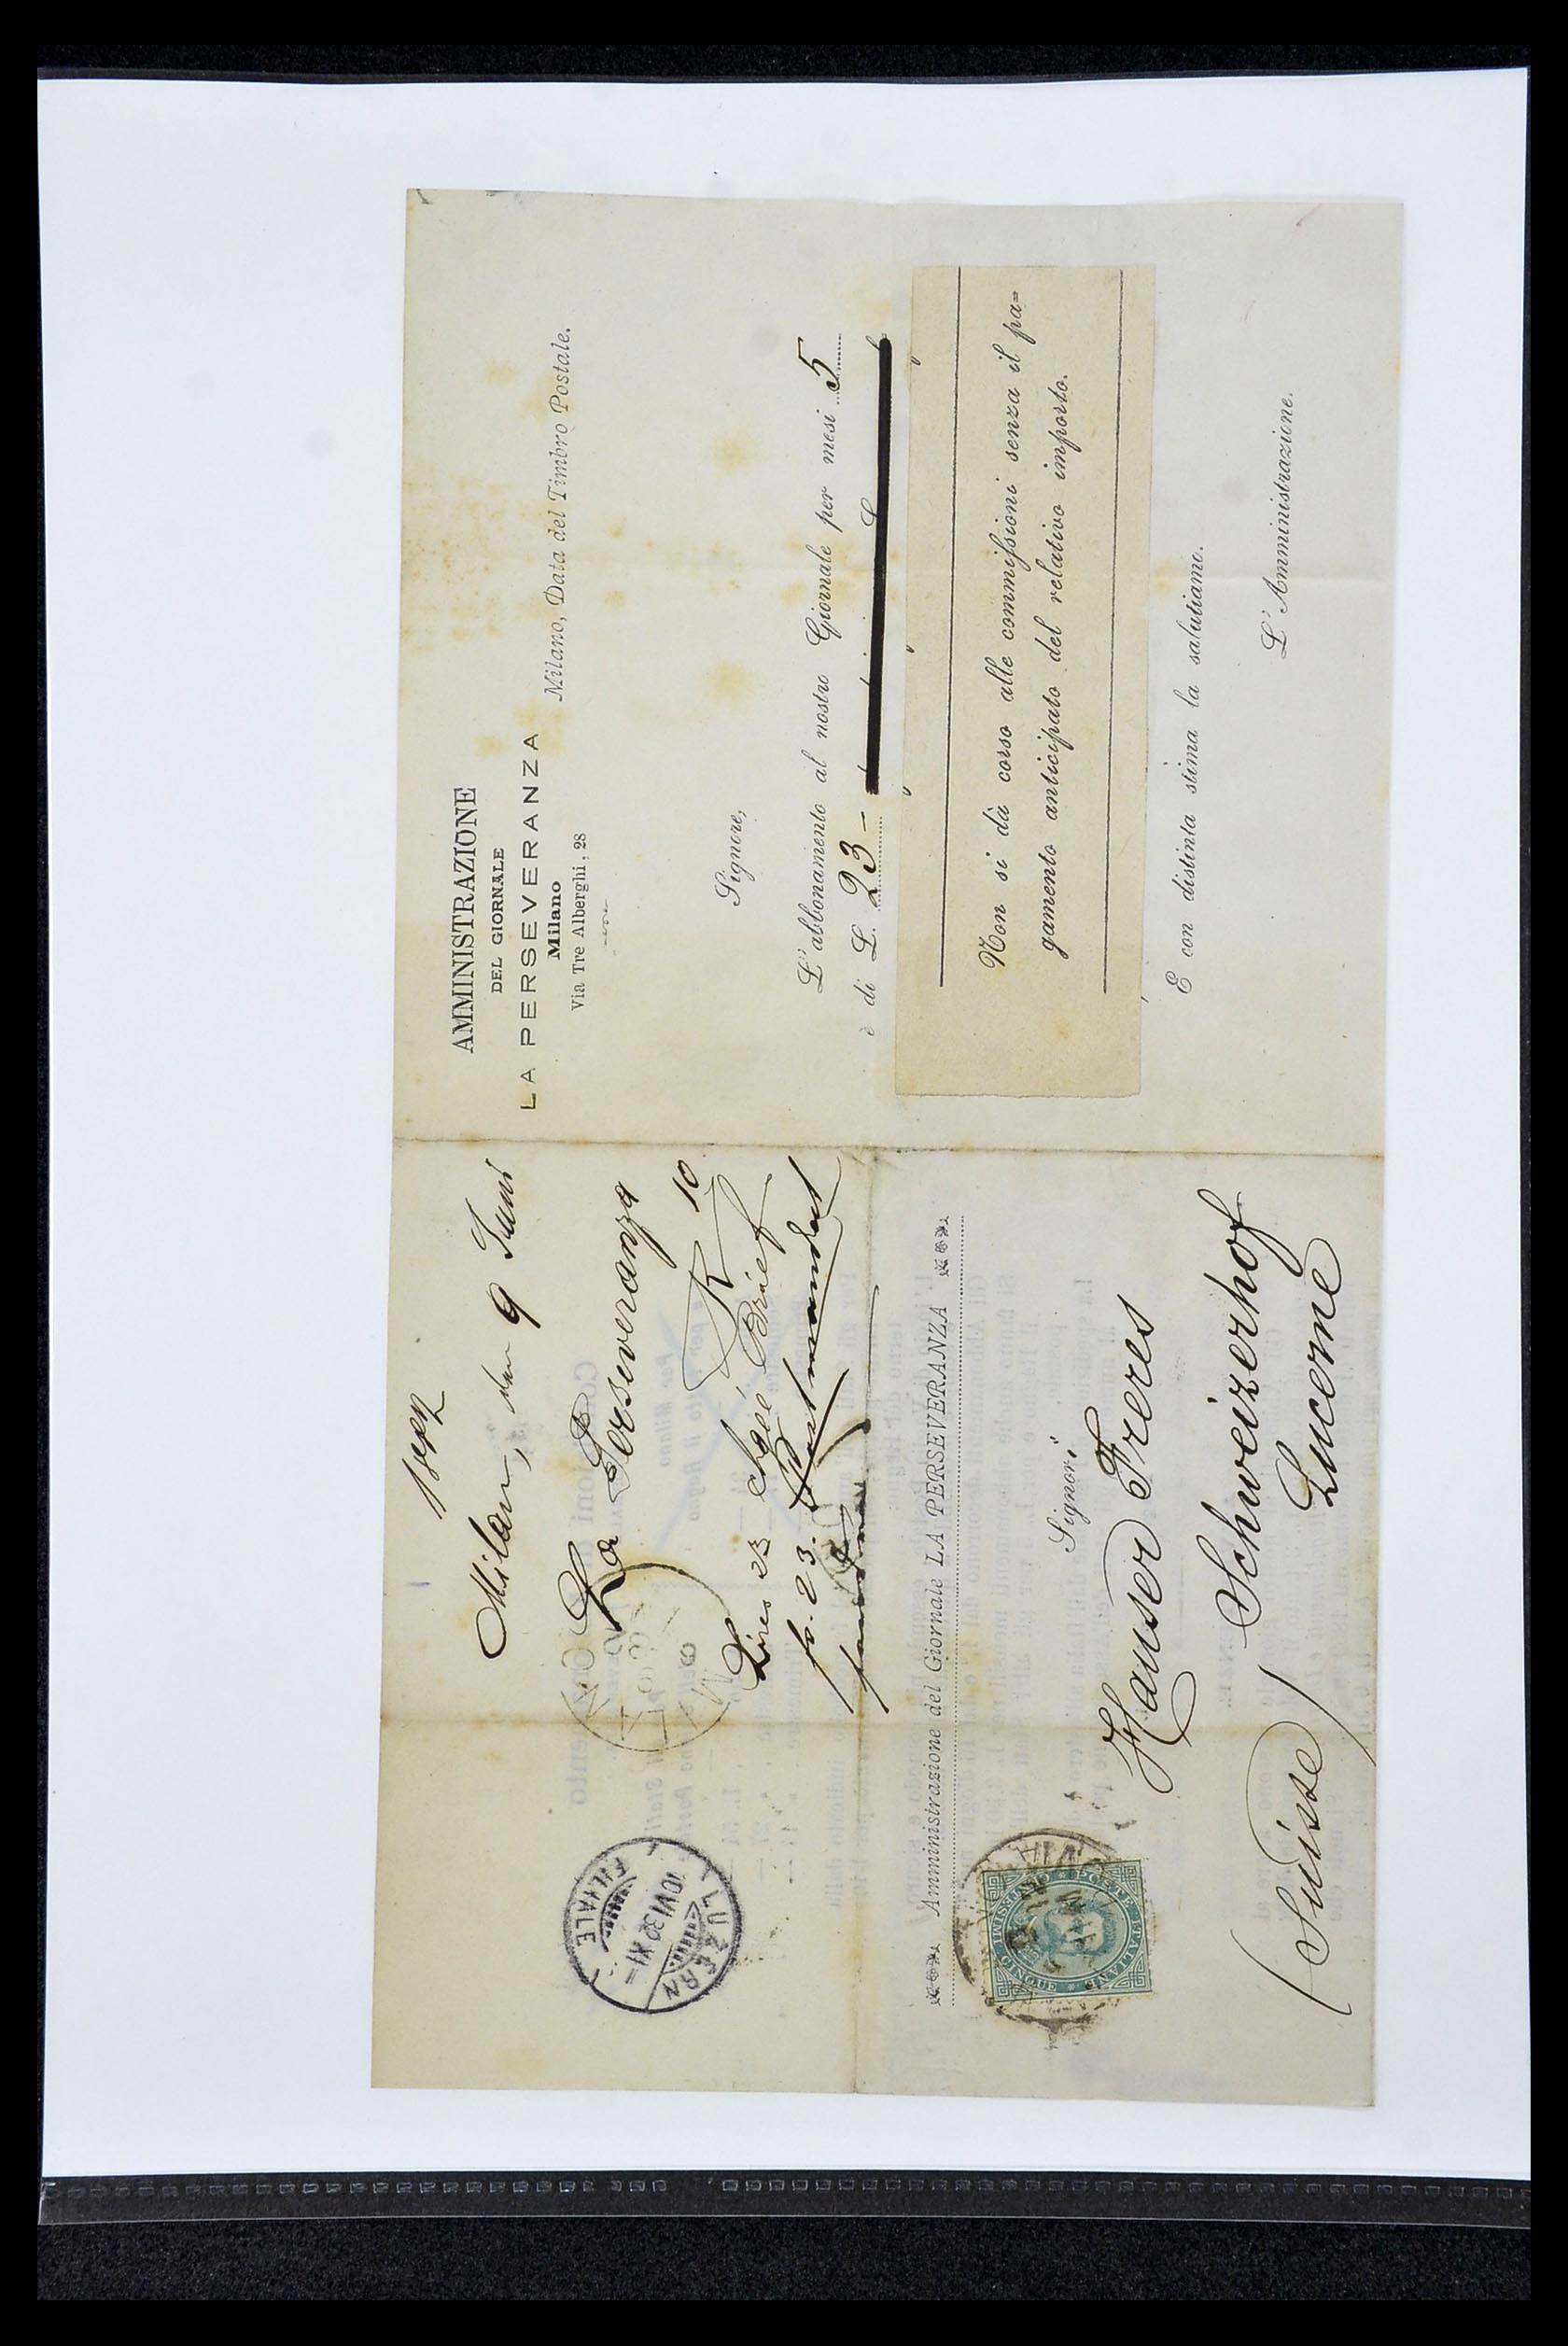 AMMINISTRAZIONE
DEL GIORNALE
LA PERSEVERANZA
Milano
Via Tre Alberghi, 28
Milano, Data del Timbro Postale.
Signore,
L'abbonamento al nostro Giornale per mesi 5
è di L. 23 –
Non si dà corso alle commissioni senza il pa=
gamento anticipato del relativo importo.
E con distinta stima la salutiamo.
L'Amministrazione.
Milan, den 9 Juni
La Perseveranza
R 10
Lires 23 chgé Brief
fr. 23. Postmandat
LUZERN
10 VI 92 XI –
FILIALE
Amministrazione del Giornale LA PERSEVERANZA
Signori
Hauser Freres
Schweizerhof
Lucerne
(Suisse)
POSTE ITALIANE
CINQUE CENTESIMI